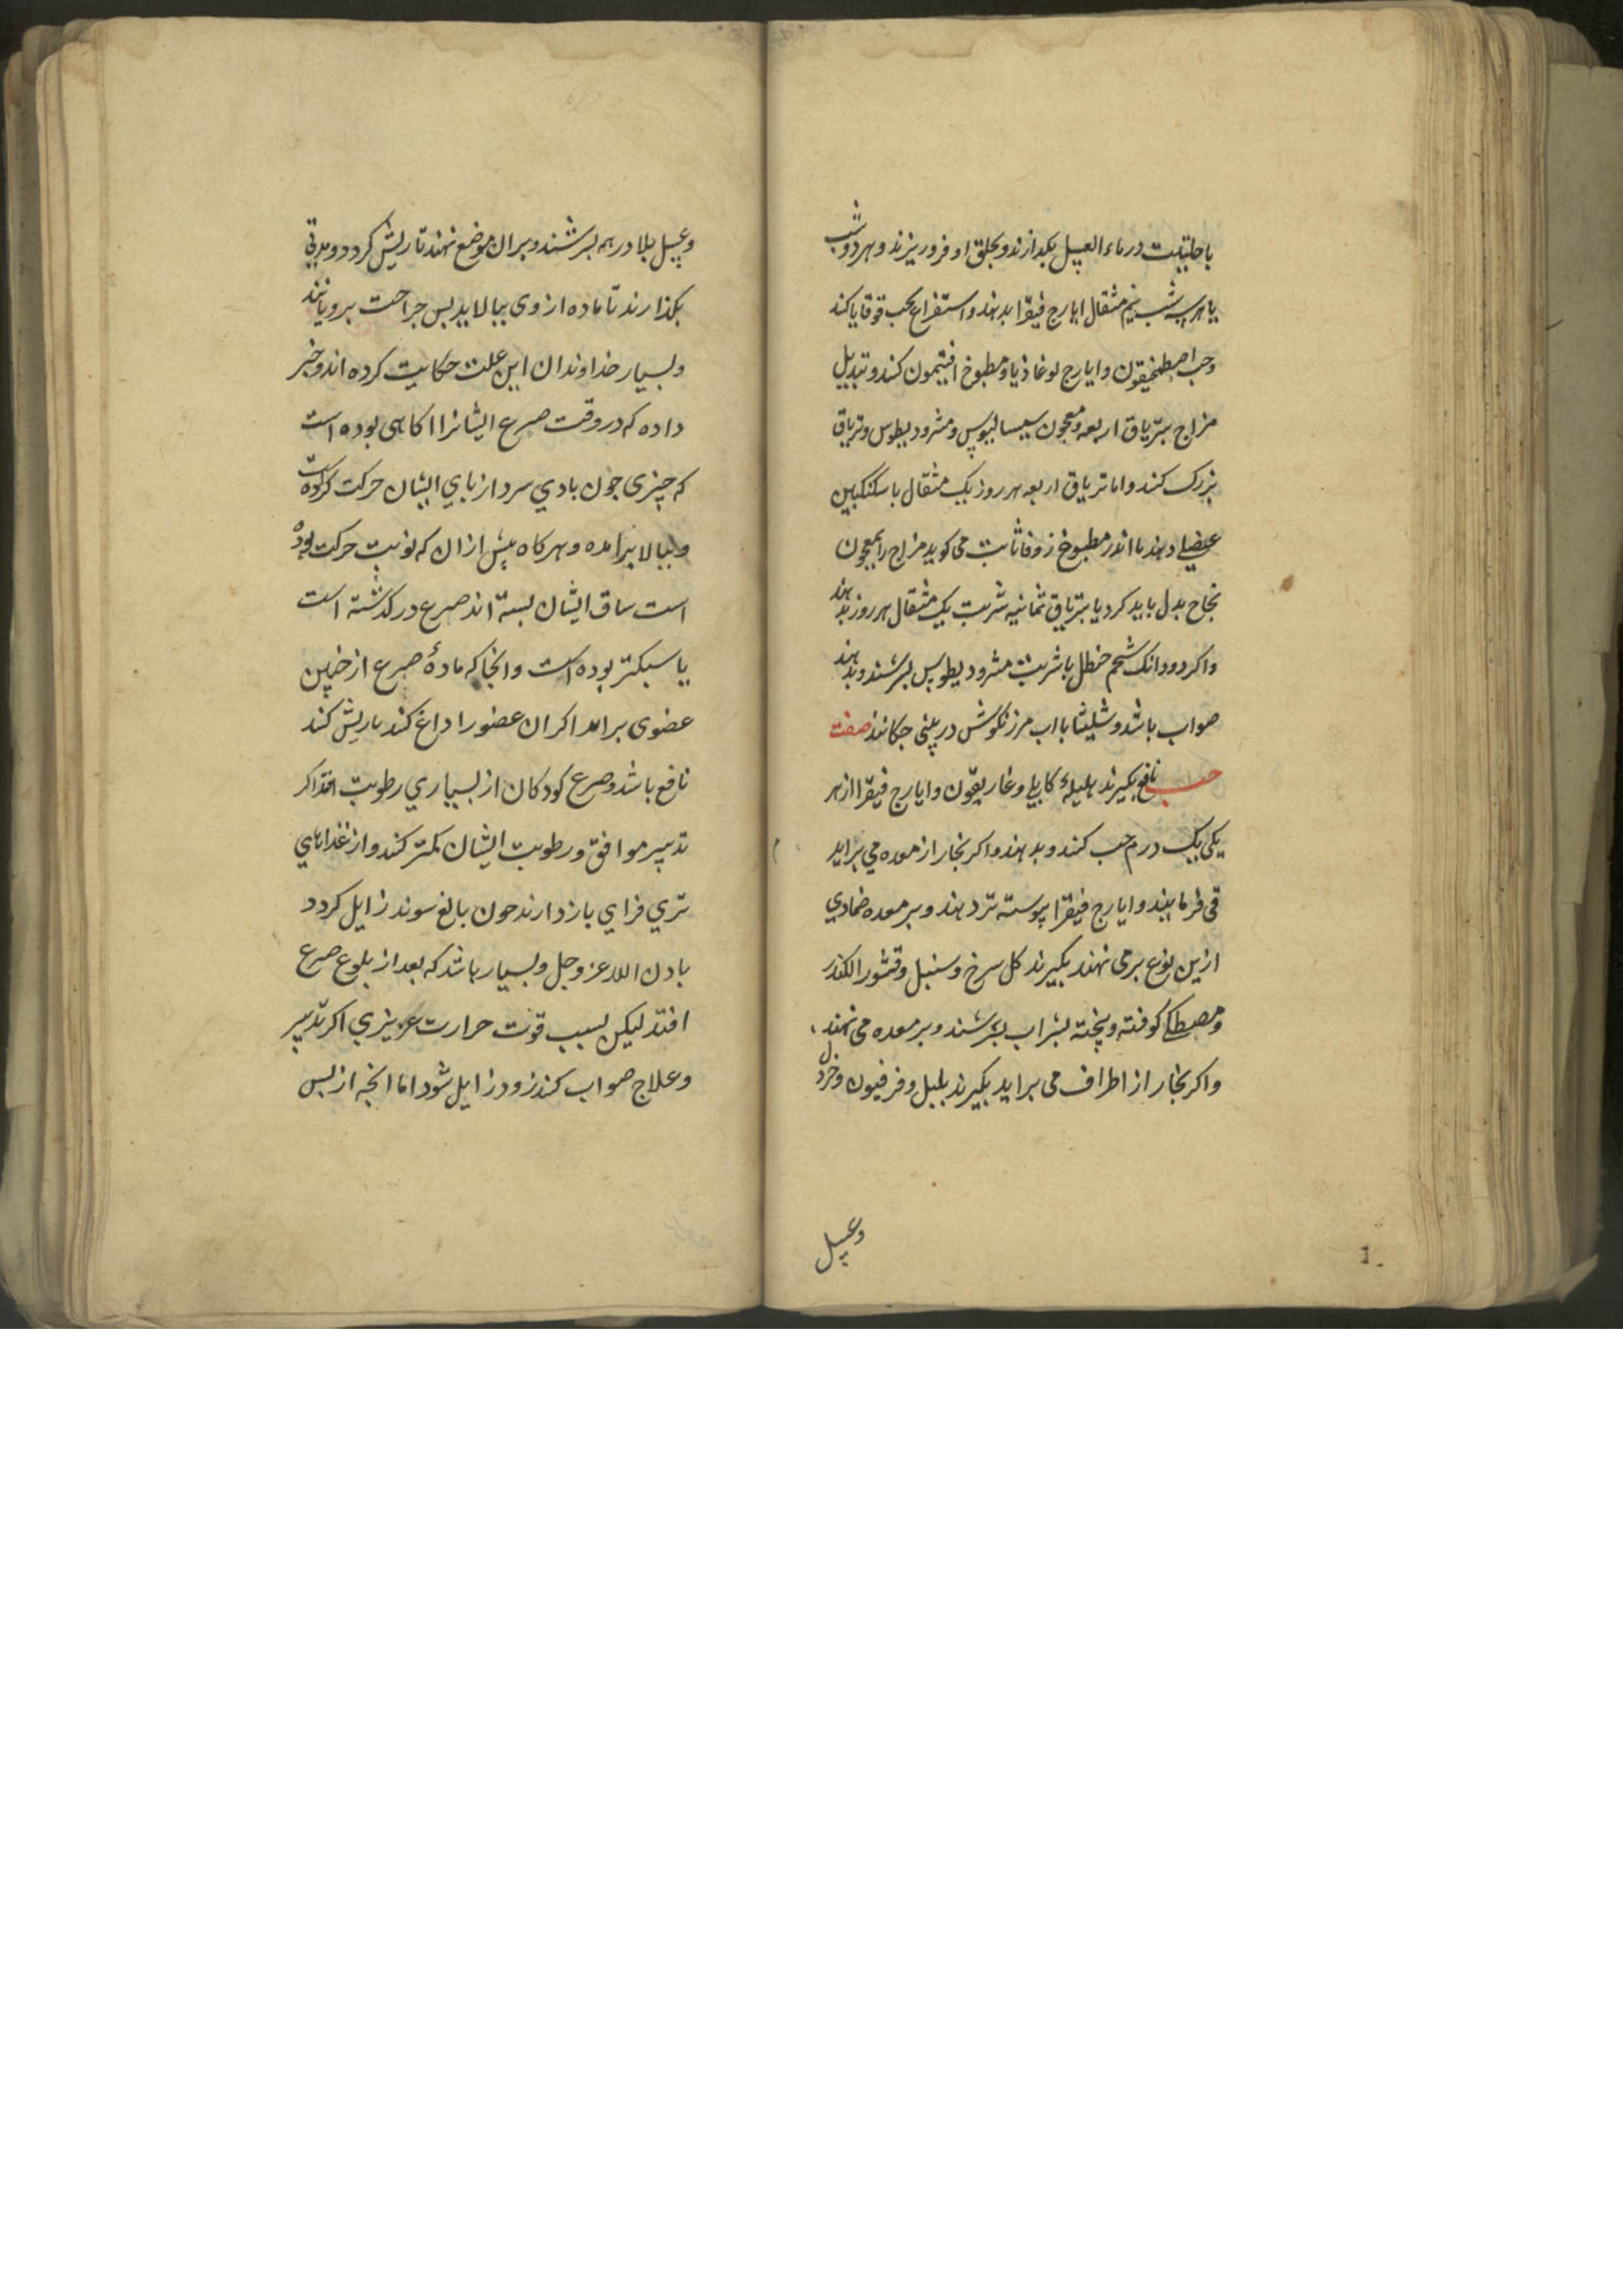 با حلتیت در ماء العسل بکدازند و بحلق او فرو ریزند و هر دو شب
یا هر سه شب نیم مثقال ایارج فیقرا بدهند و استفراغ بحب قوقایا کند
و حب اصطمخیقون و ایارج لوغاذیا و مطبوخ افتیمون کنند و تبدیل
مزاج بتریاق اربعه و معجون سیسالیوس و مثرودیطوس و تریاق
بزرک کنند و اما تریاق اربعه هر روز یک مثقال با سکنکبین
عنصلی دهند یا اندر مطبوخ زوفا ثابت می کوید مزاج را بمعجون
نجاح بدل باید کرد یا بتریاق ثمانیه شربت یک مثقال هر روز بدهند
و اکر دو دانک شحم حنظل با شربت مثرودیطوس بسرشند و بدهند
صواب باشد و شلیثا با اب مرزنکوش در بینی جکانند صفت
حب نافع بکیرند هلیلهٔ کابلی و غاریقون و ایارج فیقرا از هر
یکی یک درم حب کنند و بدهند و اکر بخار از معده می براید
قی فرمایند و ایارج فیقرا پیوسته تر دهند و بر معده ضمادی
ازین نوع بر می نهند بکیرند کل سرخ و سنبل و قشور الکندر
و مصطکی کوفته و پخته بشراب بسرشند و بر معده می نهند
و اکر بخار از اطراف می براید بکیرند بلبل و فرفیون و خردل
وعسل
و عسل بلادر همه بسرشند و بران موضع نهند تا ریش کردد و مدتی
بکذارند تا ماده از وی ببالاید بس جراحت برویانند
و بسیار خداوندان این علت حکایت کرده اند و خبر
داده که در وقت صرع ایشانرا اکاهی بوده است
که چیزی جون بادی سرد از بای ایشان حرکت کرده است
و ببالا برامده و هرکاه پیش ازان که نوبت حرکت بوده
است ساق ایشان بسته اند صرع در کذشته است
یا سبکتر بوده است و انجا که مادهٔ صرع از جنین
عضوی براید اکر ان عضو را داغ کند یا ریش کند
نافع باشد و صرع کودکان از بسیاری رطوبت افتد اکر
تدبیر موافق و رطوبت ایشان کمتر کنند و از غذاهای
تری فزای باز دارند جون بالغ شوند زایل کردد
باذن الله عز وجل و بسیار باشد که بعد از بلوغ صرع
افتد لیکن بسبب قوت حرارت غریزی اکر تدبیر
و علاج صواب کنند زود زایل شود اما انجه از بس